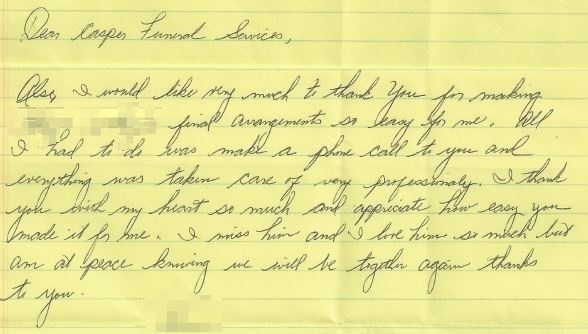 Dear Casper Funeral Services,
Also I would like very much to thank you for making
final arangements so easy for me. All
I had to do was make a phone call to you and
everything was taken care of very professionaly. I thank
you with my heart so much and appriciate how easy you
made it for me. I miss him and I love him so much but
am at peace knowing we will be together again thanks
to you.